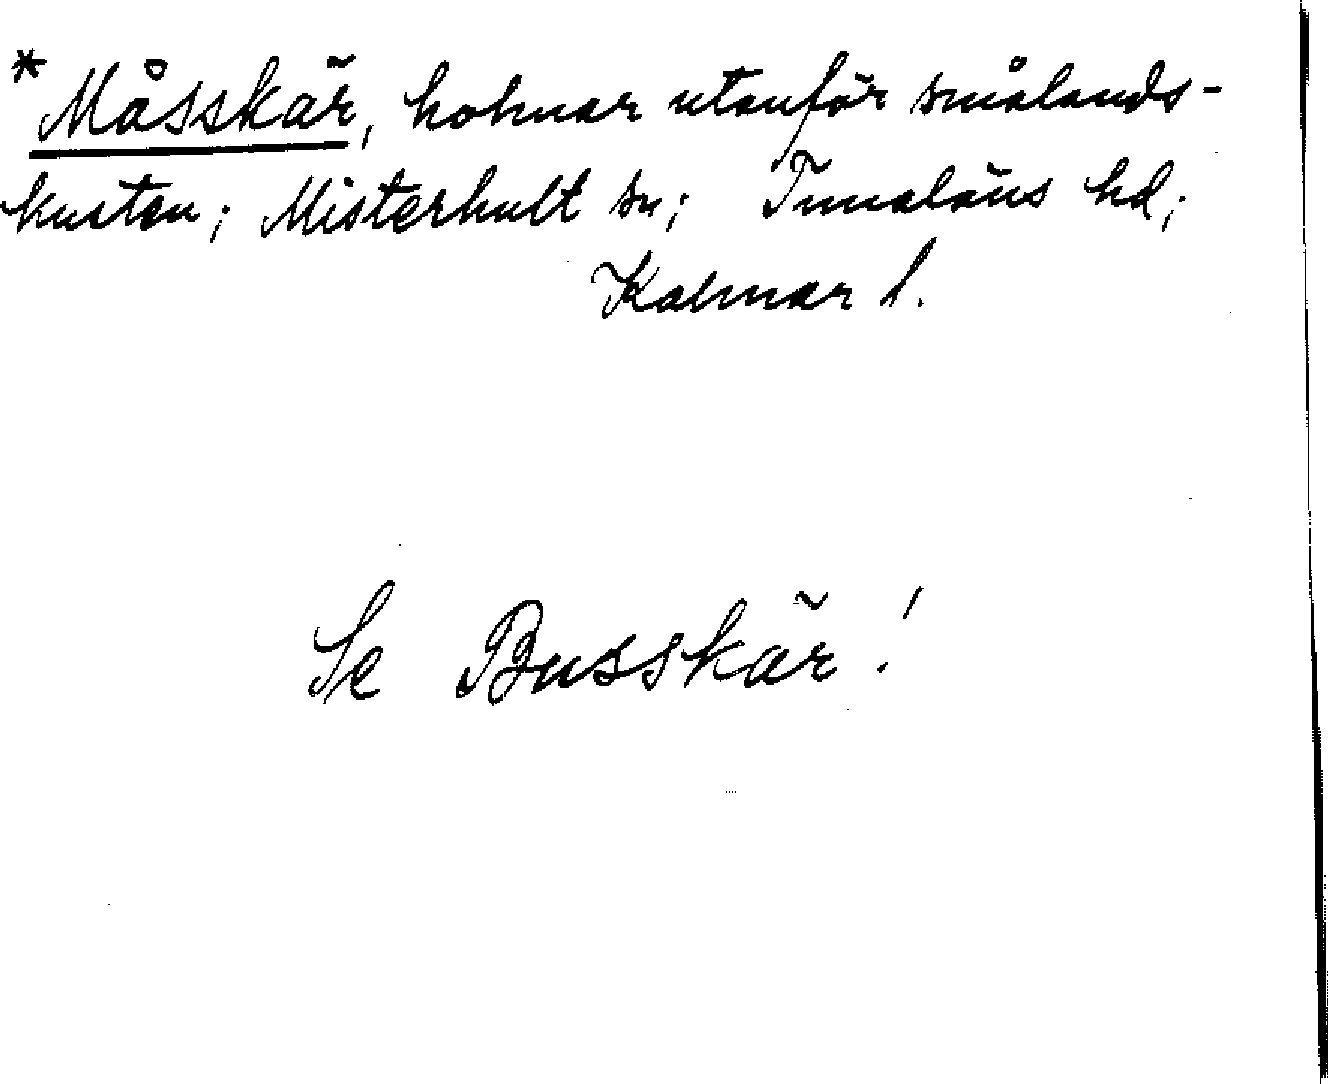 * Måsskär, holmar utanför smålands-
kusten; Misterhult sn; Tunaläns hd;
Kalmar l.
Se Busskär!